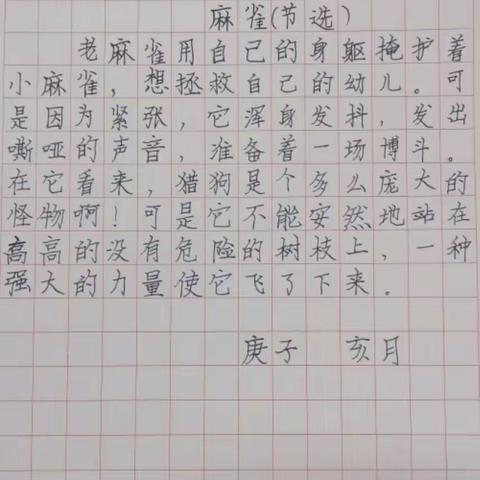 麻雀(节选)
老麻雀用自己的身躯掩护着
小麻雀，想拯救自己的幼儿。可
是因为紧张，它浑身发抖，发出
嘶哑的声音，准备着一场博斗。
在它看来，猎狗是个多么庞大的
怪物啊！可是它不能安然地站在
高高的没有危险的树枝上，一种
强大的力量使它飞了下来．
庚子 亥月